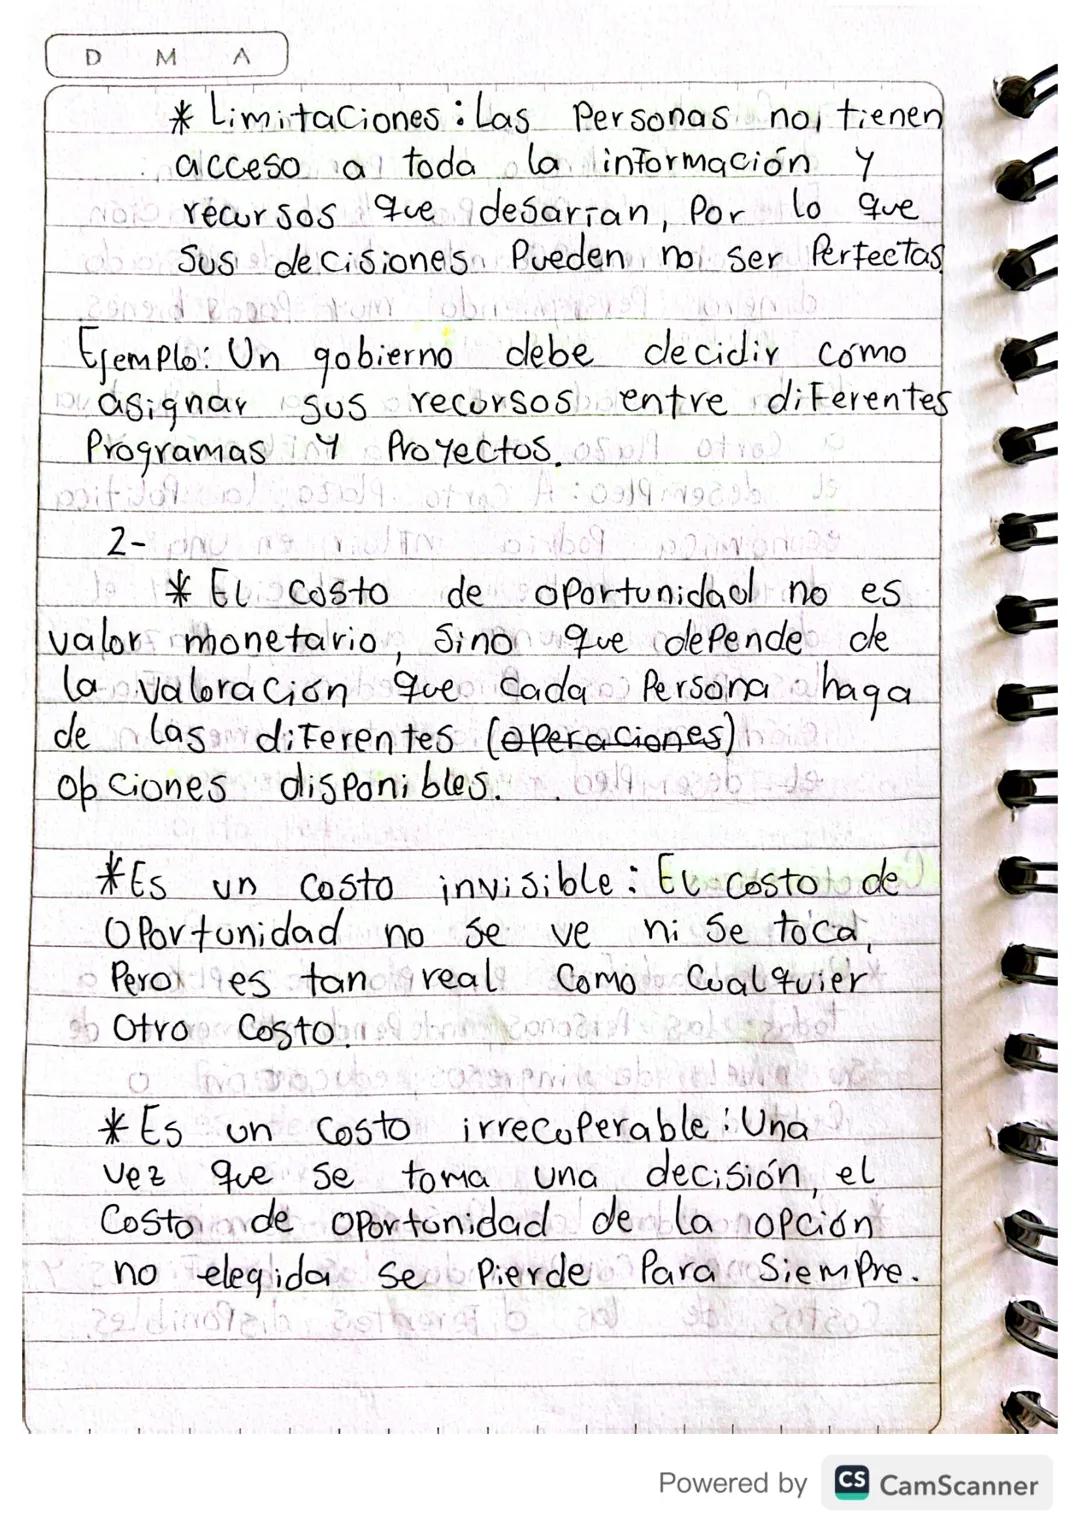 D M A
* Limitaciones: Las Personas no tienen
acceso a toda la información y
recursos que desarían, Por lo que
Sus decisiones Pueden no ser Perfectas
Ejemplo: Un gobierno debe decidir como
asignar sus recursos entre diferentes
Programas y Proyectos.
2-
* El costo de oportunidad no es
valor monetario, Sino que depende de
la valoración que cada Persona haga
de las diferentes (operaciones)
opciones disponibles.
*Es un costo invisible: El costo de
Oportunidad no se ve ni se toca,
Pero es tan real Como Cualquier
Otro Costo.
*Es un Costo irrecuperable: Una
vez que se toma una decisión, el
Costo de oportunidad de la opción
no elegida se Pierde Para Siempre.
Powered by CS CamScanner